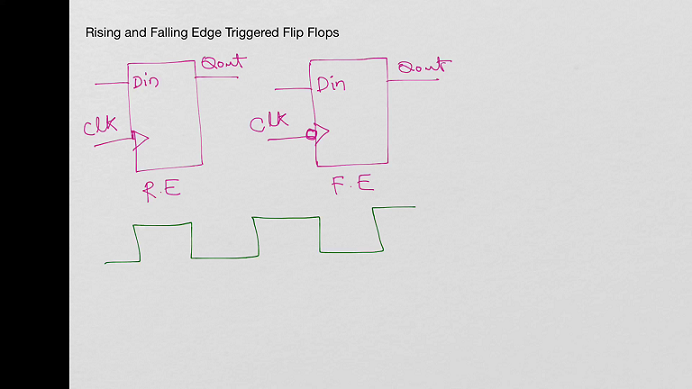 Rising and Falling Edge Triggered Flip Flops
Qout
Din
Clk
R.E
Qout
Din
Clk
F.E